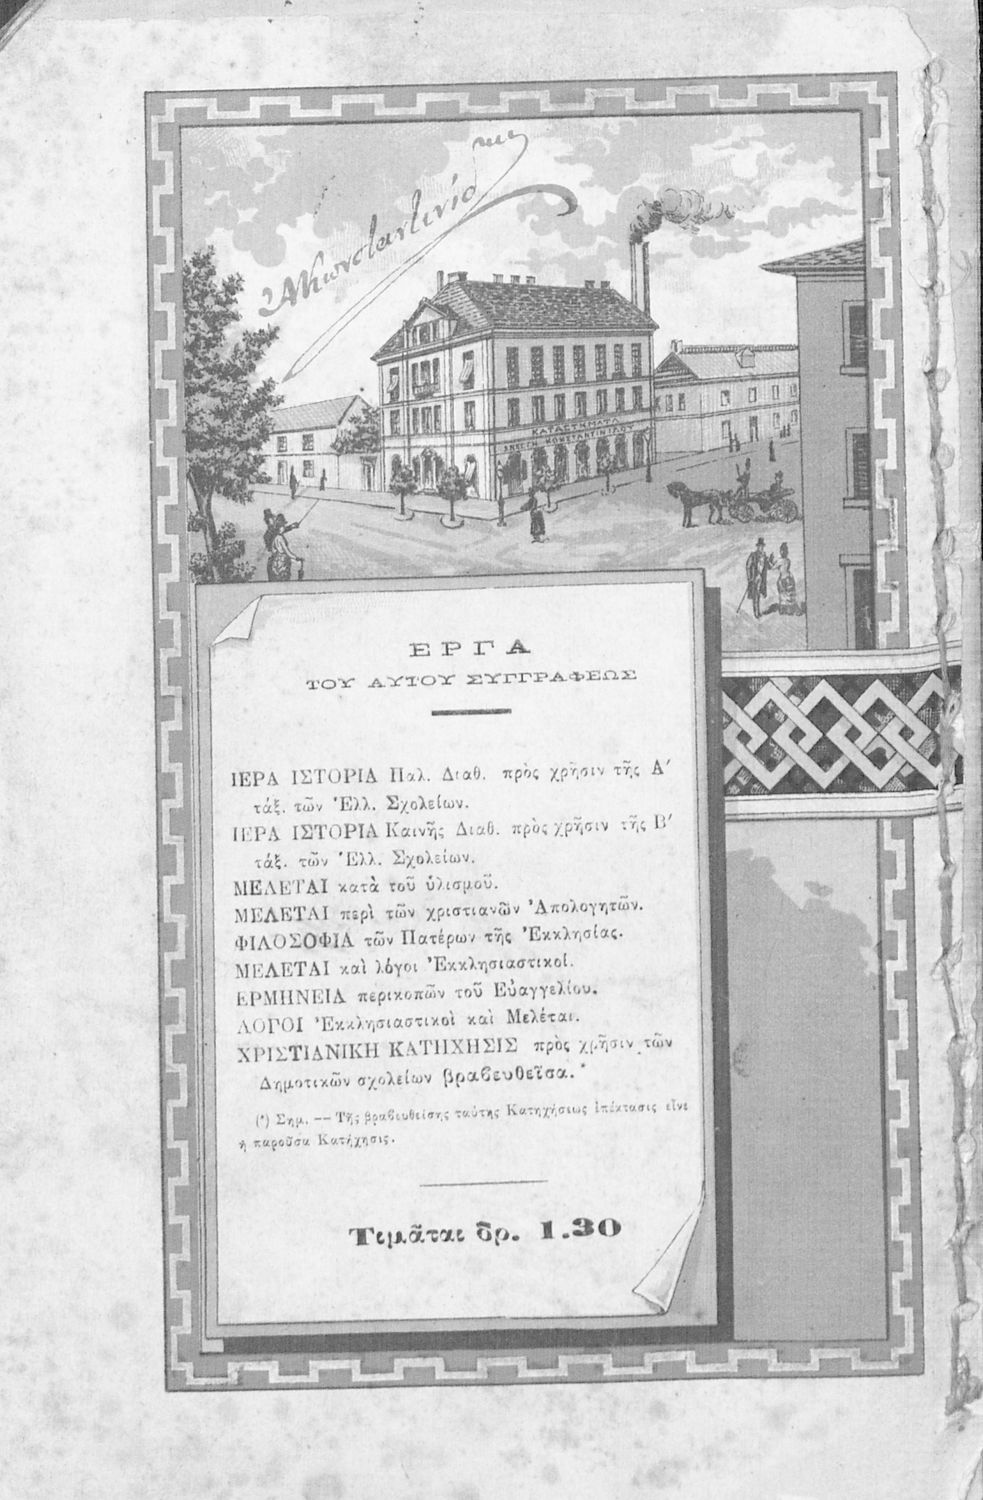 ΚΑΤΑΣΤΗΜΑΤΑ
ΑΝΕΣΤΗ ΚΩΝΣΤΑΝΤΙΝΙΔΟΥ
ΕΡΓΑ
ΤΟΥ ΑΥΤΟΥ ΣΥΓΓΡΑΦΕΩΣ
ΙΕΡΑ ΙΣΤΟΡΙΑ Παλ. Διαθ. πρὸς χρῆσιν τῆς Α′
τάξ. τῶν Ἑλλ. Σχολείων.
ΙΕΡΑ ΙΣΤΟΡΙΑ Καινῆς Διαθ. πρὸς χρῆσιν τῆς Β′
τάξ. τῶν Ἑλλ. Σχολείων.
ΜΕΛΕΤΑΙ κατὰ τοῦ ὑλισμοῦ.
ΜΕΛΕΤΑΙ περὶ τῶν χριστιανῶν Ἀπολογητῶν.
ΦΙΛΟΣΟΦΙΑ τῶν Πατέρων τῆς Ἐκκλησίας.
ΜΕΛΕΤΑΙ καὶ λόγοι Ἐκκλησιαστικοί.
ΕΡΜΗΝΕΙΑ περικοπῶν τοῦ Εὐαγγελίου.
ΛΟΓΟΙ Ἐκκλησιαστικοὶ καὶ Μελέται.
ΧΡΙΣΤΙΑΝΙΚΗ ΚΑΤΗΧΗΣΙΣ πρὸς χρῆσιν τῶν
Δημοτικῶν σχολείων βραβευθεῖσα.*
(*) Σημ. — Τῆς βραβευθείσης ταύτης Κατηχήσεως ἐπέκτασις εἶνε
ἡ παροῦσα Κατήχησις.
Τιμᾶται δρ. 1.30